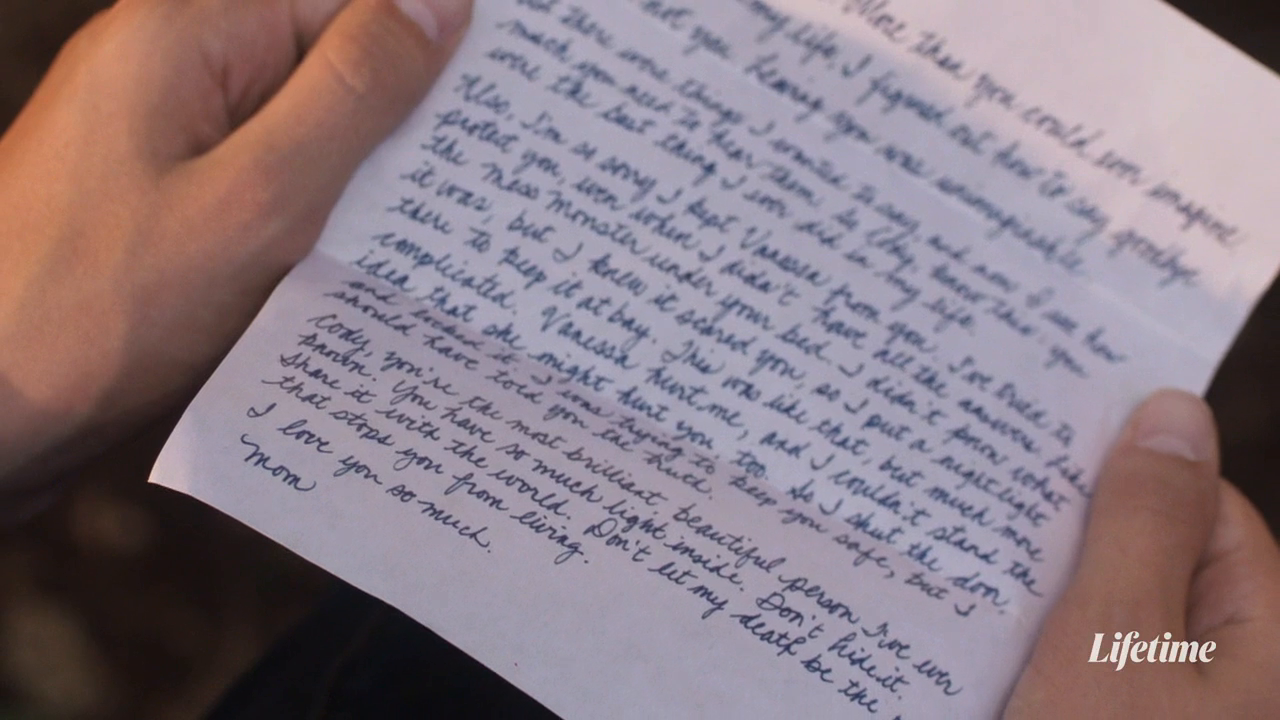 More than you could ever imagine.
my life. I figured out how to say goodbye.
not you hearing you was unimaginable
But there were things I wanted to say, and now I see how
much you need to hear them. So Cody, know this: you
were the best thing I ever did in my life.
Also, I'm so sorry I kept Vanessa from you. I've tried to
protect you, even when I didn't have all the answers. Like
the Mess Monster under your bed. I didn't know what
it was, but I knew it scared you, so I put a nightlight
there to keep it at bay. This was like that, but much more
complicated. Vanessa hurt me, and I couldn't stand the
idea that she might hurt you, too. So I shut the door,
and locked it. I was trying to keep you safe, but I
should have told you the truth.
Cody, you're the most brilliant, beautiful person I've ever
known. You have so much light inside. Don't hide it.
Share it with the world. Don't let my death be the
that stops you from living.
I love you so much.
Mom
Lifetime